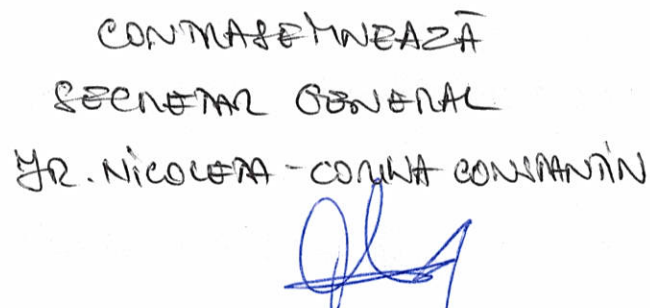 CONTRASEMNEAZĂ
SECRETAR GENERAL
JR. NICOLETA-CORINA CONSTANTIN